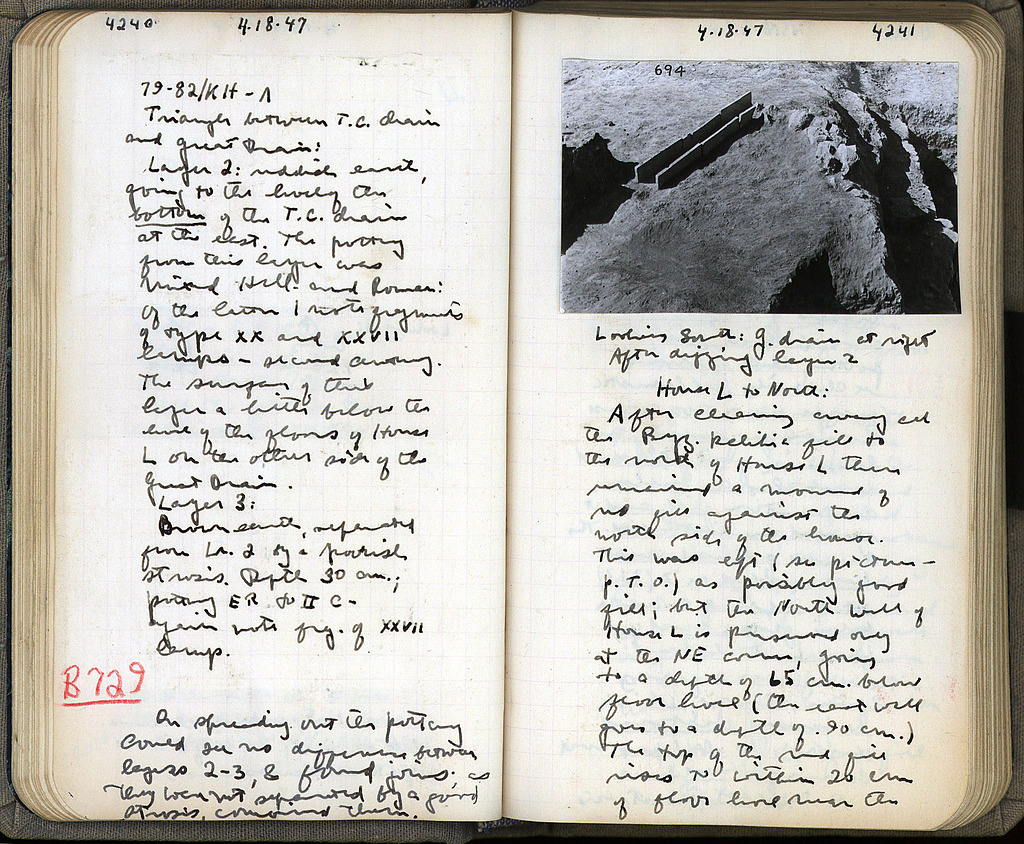 4240 4.18.47
79-82/KH-Λ
Triangle between T.C. drain
and great Drain:
Layer 2: reddish earth,
going to the level of the
bottom of the T.C. drain
at the east. The pottery
from this layer was
mixed Hell. and Roman:
of the latter I note fragments
of type XX and XXVII
lamps - second century.
The surface of this
layer a little below the
level of the floors of House
L on the other side of the
Great Drain.
Layer 3:
Brown earth, separated
from Lr. 2 by a poorish
strosis. Depth 30 cm.;
pottery ER to II C-
again note frg. of XXVII
lamp.
B729
On spreading out the pottery
could see no difference between
layers 2-3, & found joins. as
they were not separated by a good
strosis, combined them.
4.18.47 4241
694
Looking South: G. drain at right
After digging layer 2
House L to North:
After cleaning away all
the Byz. fill to
the north of House L there
remained a mound of
red fill against the
north side of the house.
This was left (see picture -
p. T.O.) as possibly good
fill; but the North wall of
House L is preserved only
at the NE corner, going
to a depth of 65 cm. below
floor level (the east wall
goes to a depth of .90 cm.)
The top of the red fill
rises to within 20 cm
of floor level near the